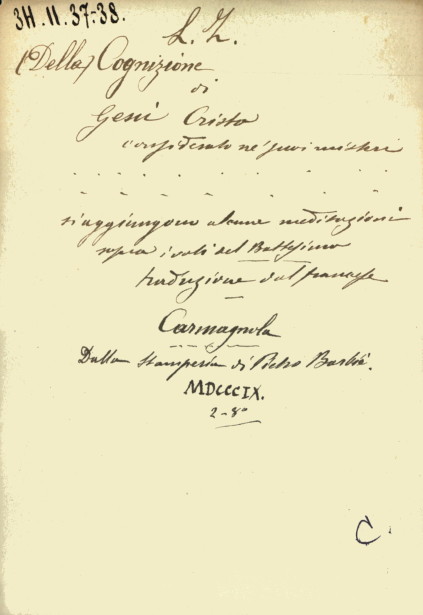 3H.11.37-38.
L. Z.
(Della) Cognizione
di
Gesù Cristo
considerato ne' suoi misteri
. . . . . . . . .
. . . . . . . . .
si aggiungono alcune meditazioni
sopra i voti del Battesimo
traduzione dal francese
Carmagnola
Dalla Stamperia di Pietro Barbiè.
MDCCCIX.
2-8°
C